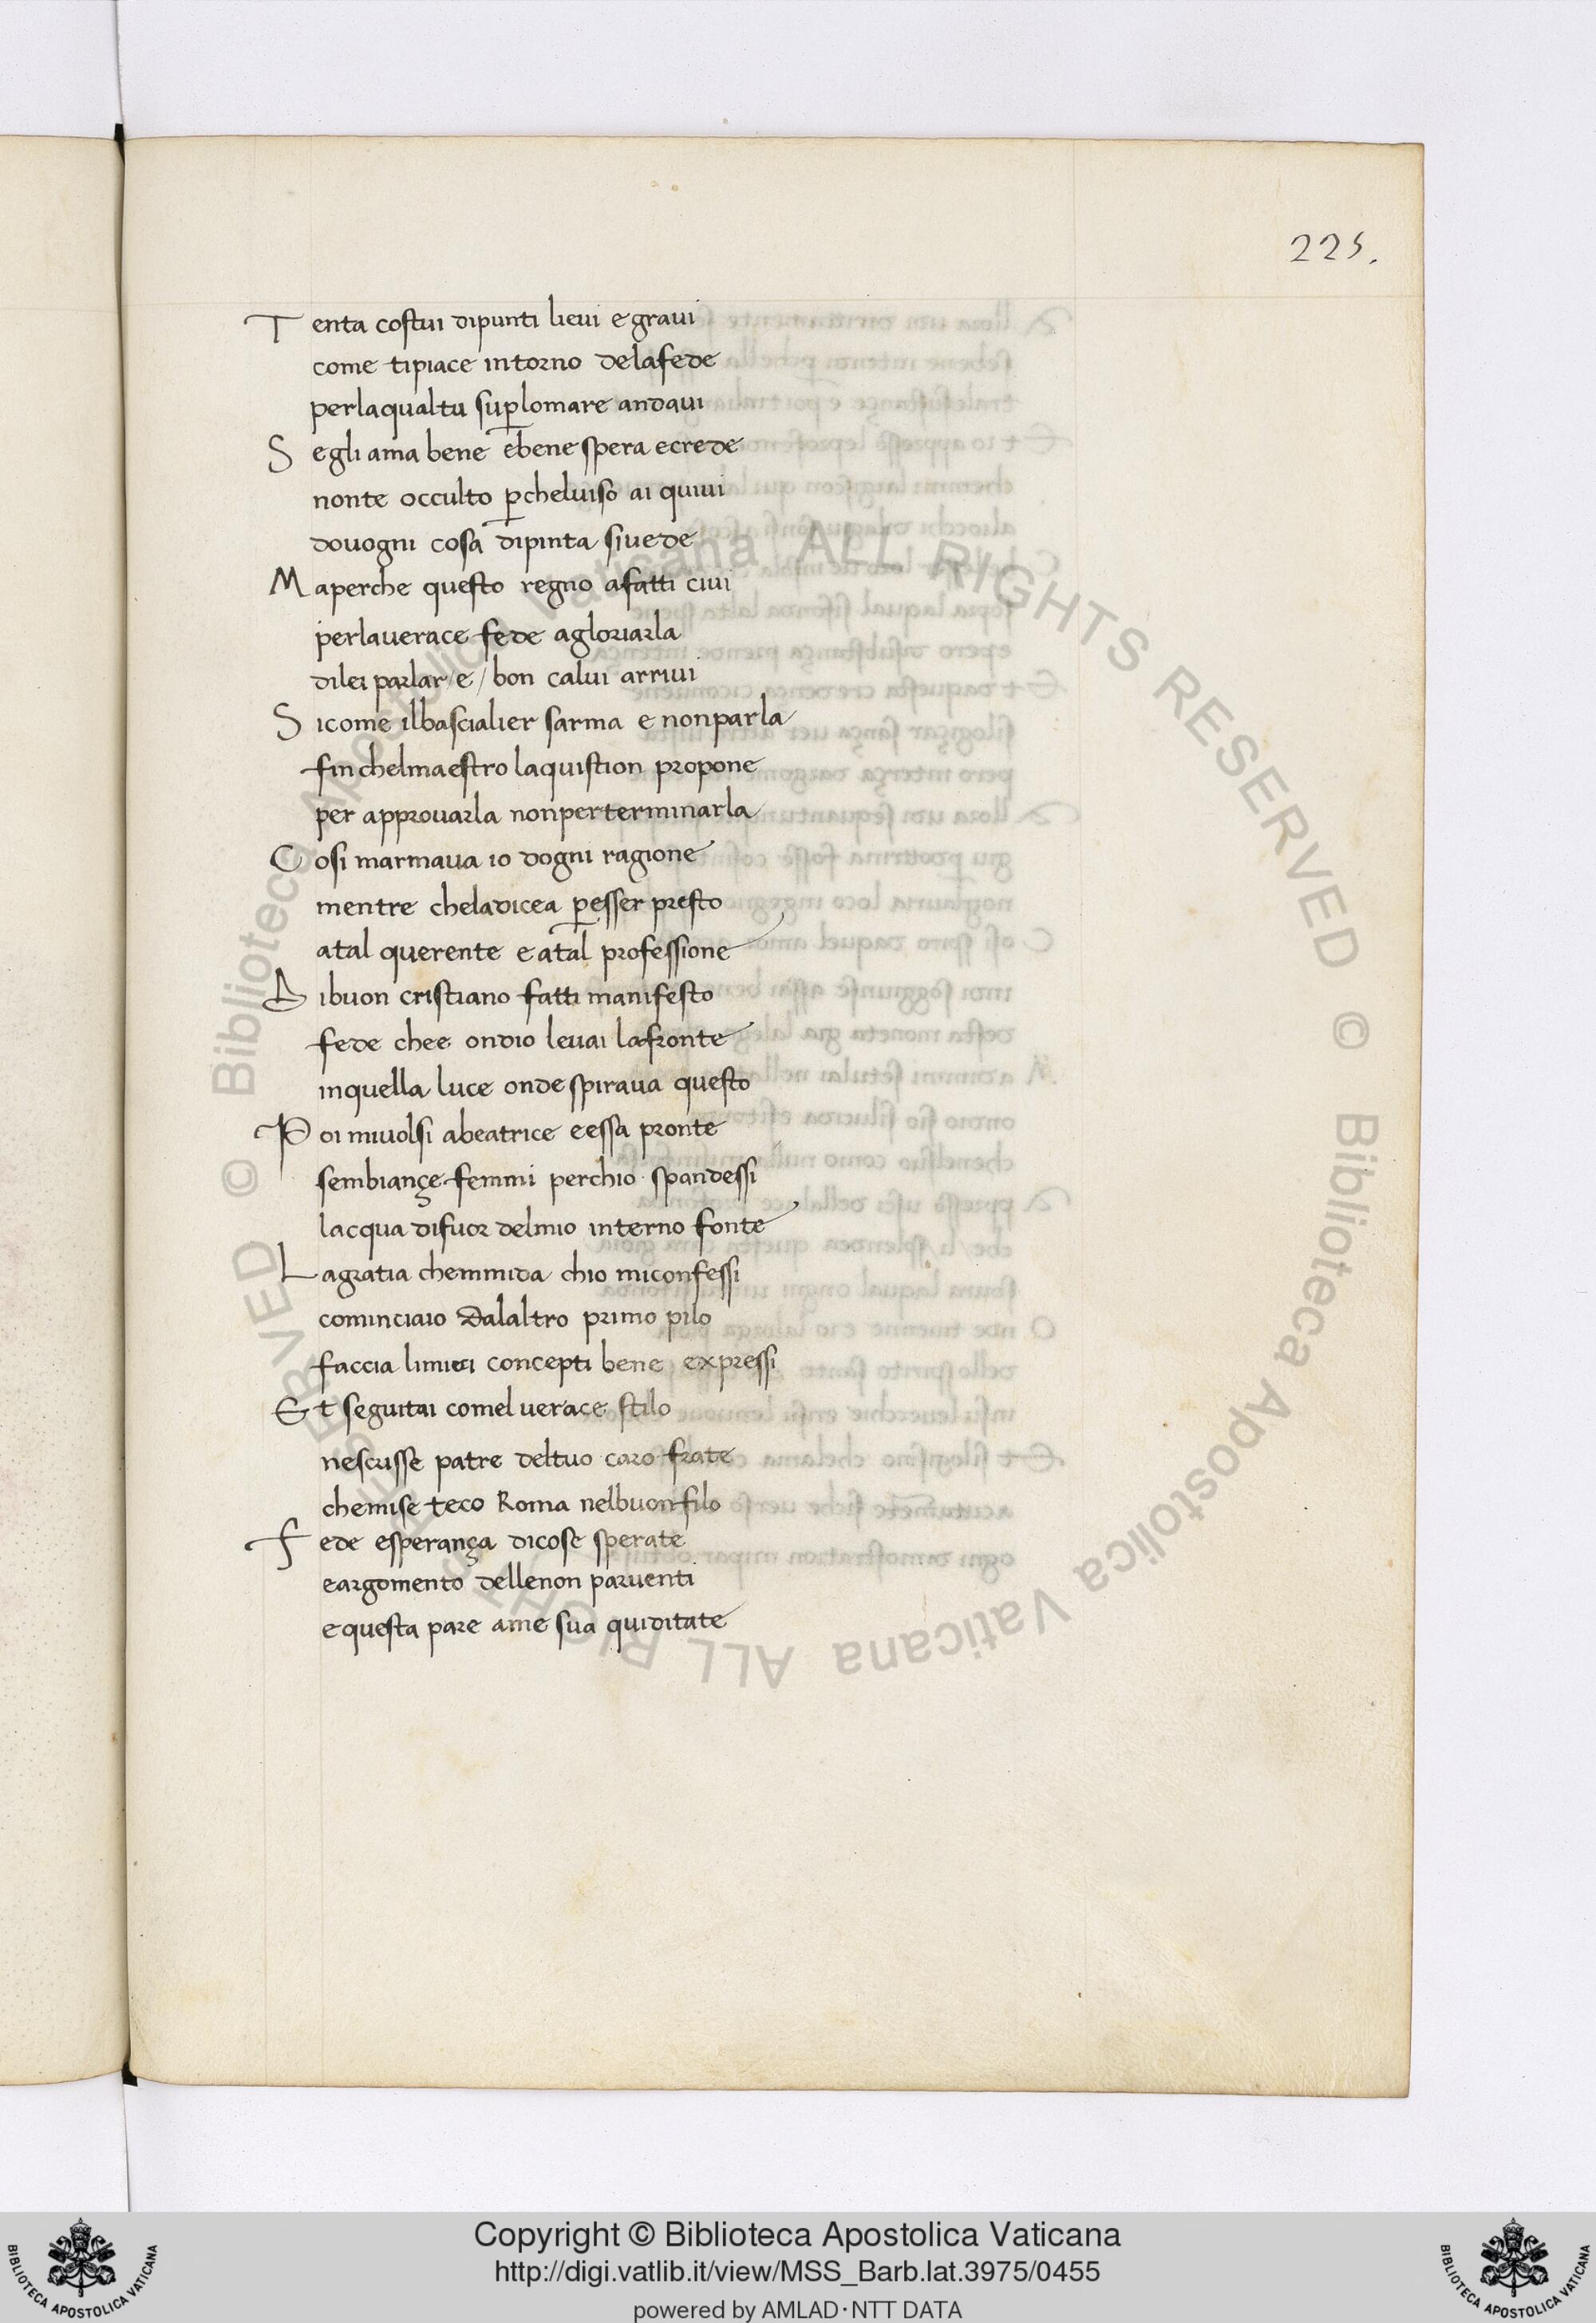 225.
Tenta costui dipunti lieui e graui
come tipiace intorno delafede
perlaqualtu suꝑlomare andaui
Segli ama bene ebene spera ecrede
nonte occulto ꝑcheluiso ai quiui
douogni cosa dipinta siuede
Maperche questo regno afatti ciui
perlauerace fede agloriarla
dilei parlar/e/bon calui arriui
Sicome ilbascialier sarma e nonparla
finchelmaestro laquistion propone
per approuarla nonperterminarla
Cosi marmaua io dogni ragione
mentre cheladicea ꝑesser presto
atal querente e atal professione
Dibuon cristiano fatti manifesto
fede chee ondio leuai lafronte
inquella luce onde spiraua questo
Poi miuolsi abeatrice eessa pronte
sembiançe femmi perchio spandessi
lacqua difuor delmio interno fonte
Lagratia chemmida chio miconfessi
cominciaio dalaltro primo pilo
faccia limiei concepti bene expressi
Et seguitai comel uerace stilo
nescrisse patre deltuo caro frate
chemise teco Roma nelbuonfilo
Fede esperança dicose sperate
eargomento dellenon paruenti
equesta pare ame sua quiditate
© Biblioteca Apostolica Vaticana ALL RIGHTS RESERVED © Biblioteca Apostolica Vaticana ALL RIGHTS RESERVED
BIBLIOTECA APOSTOLICA VATICANA
Copyright © Biblioteca Apostolica Vaticana
http://digi.vatlib.it/view/MSS_Barb.lat.3975/0455
powered by AMLAD·NTT DATA
BIBLIOTECA APOSTOLICA VATICANA